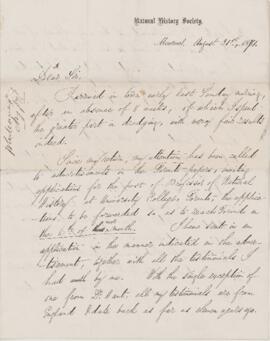 Natural History Society.
Montreal, August 31st, 1871.
Dear Sir,
I arrived in town early last Sunday morning,
after an absence of 8 weeks, of which I spent
the greater part in dredging, with very fair results
indeed.
Since my return, my attention has been called
to advertisements in the Toronto papers, inviting
applications for the post of Professor of Natural
History, at University College, Toronto; the applica-
tions to be forwarded so as to reach Toronto on
the 6th of month. I have sent in an
application in the manner indicated in the adver-
tisement, together with all the testimonials I
had with by me. With the single exception of
one from Dr. all my testimonials are from
England & date back as far as eleven years ago.